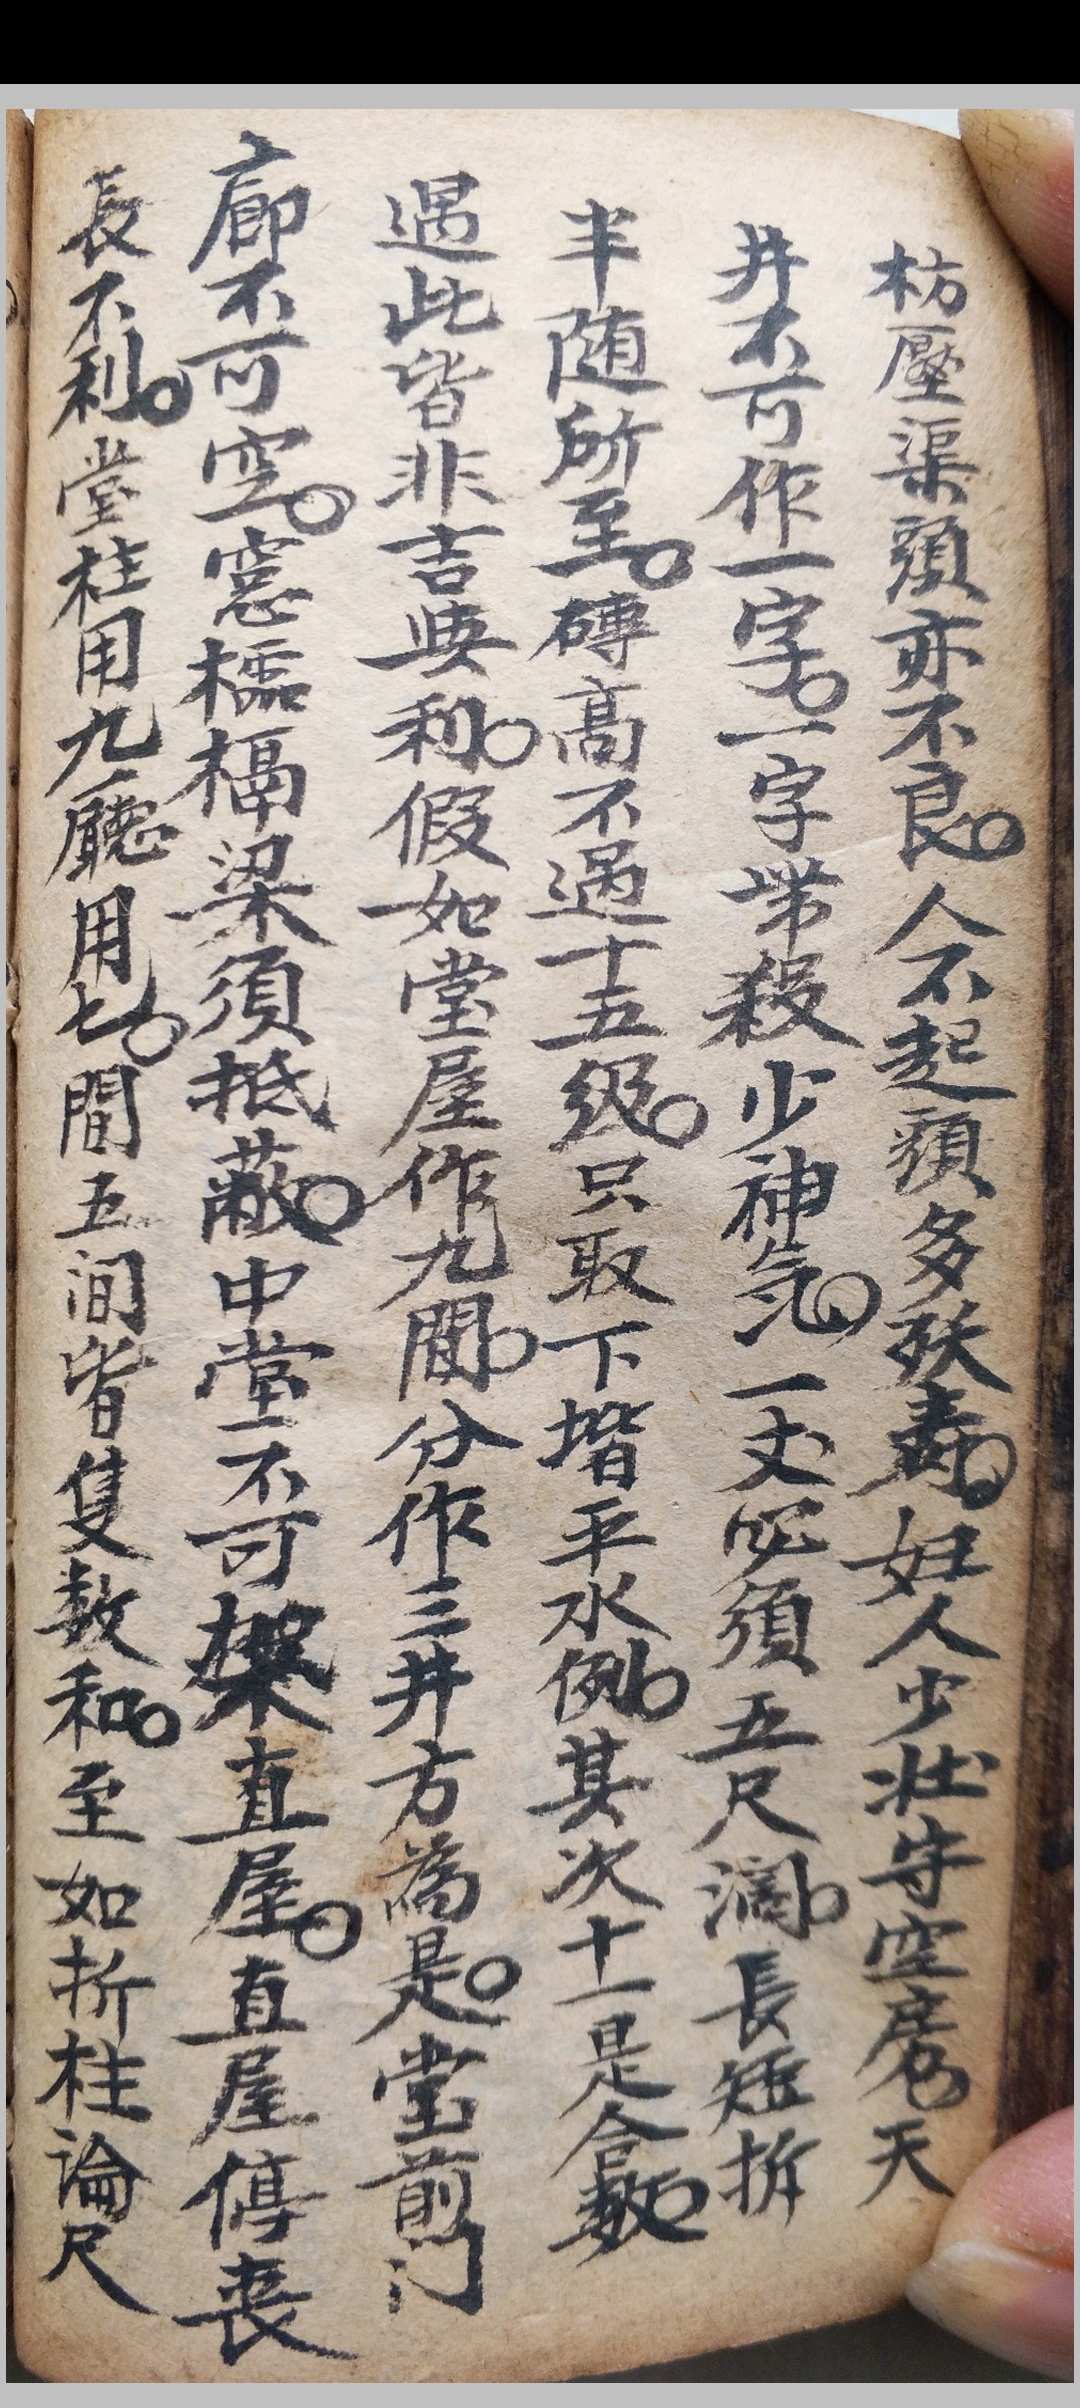 枋壓渠頭亦不良。人不起頭多殀壽。妇人少壯守空房天
井不可作一字。一字带殺少神気。一丈必須五尺濶。長短折
半随所至。磚高不過十五级。只取下堦平水例。其次十一是合數。
遇此皆非吉與利。假如堂屋作九間。分作三井方為是。堂前门
廊不可空。窓櫺槅梁須抵蔽。中堂不可架直屋。直屋停丧
長不利。堂柱用九廳用七。間五间皆隻数和。至如折柱論尺